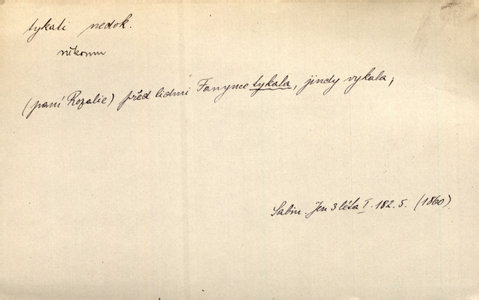 tykati nedok.
někomu
(paní Rozalie) před lidmi Fanynce tykala, jindy vykala,
Sabin. Jen 3 léta I. 182. S. (1860)